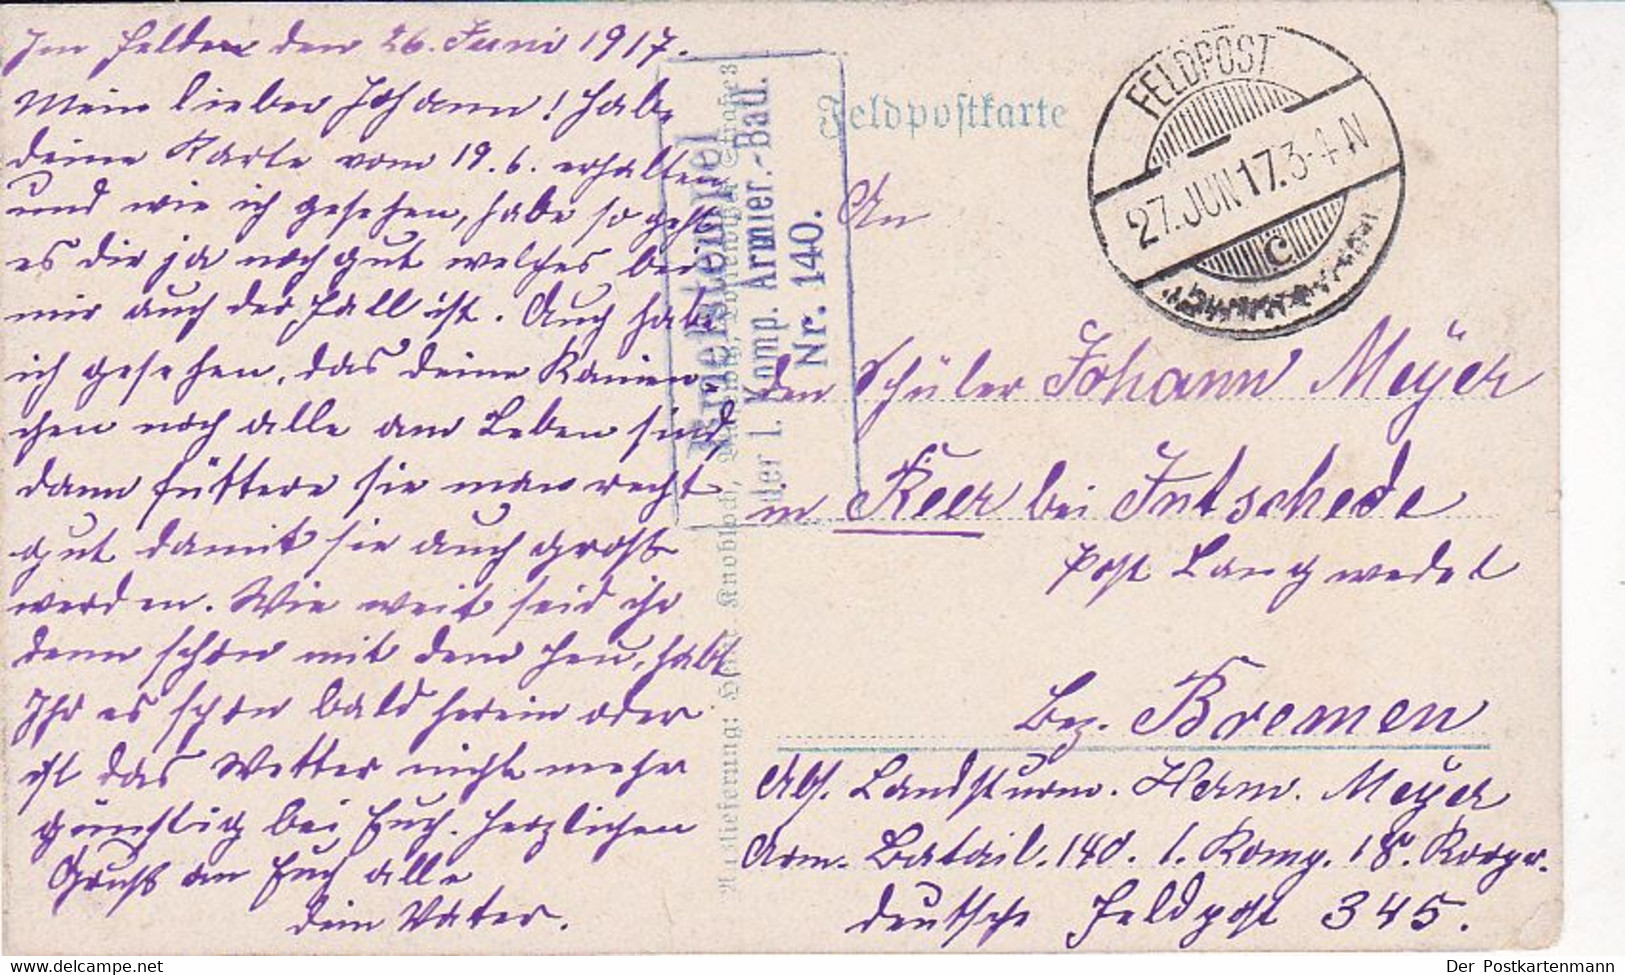 Im Felde den 26. Juni 1917.
Mein lieber Johann! Habe
deine Karte vom 19.6. erhalten
und wie ich gesehen, habe so geht
es dir ja noch gut welches bei
mir auch der Fall ist. Auch habe
ich gesehen, das deine Kanien-
chen noch alle am Leben sind,
dann füttere sie man recht
gut damit sie auch groß
werden. Wie weit seid ihr
denn schon mit dem Heu, habt
Ihr es schon bald herein oder
ist das Wetter nicht mehr
günstig bei Euch. Herzlichen
Gruß an Euch alle
dein Vater.
Auslieferung: Knobloch,
Briefstempel
der 1. Komp. Armier.-Batl.
Nr. 140.
Feldpostkarte
FELDPOST
27.JUN 17.3-4 N
C
An
den Schüler Johann Meÿer
in Reer bei Intschede
Post Langwedel
Bez. Bremen
Abs. Landsturmm. Herm. Meÿer
Arm. Batail. 140. 1. Komp. 18. Korper.
deutsche Feldpost 345.
Der Postkartenmann